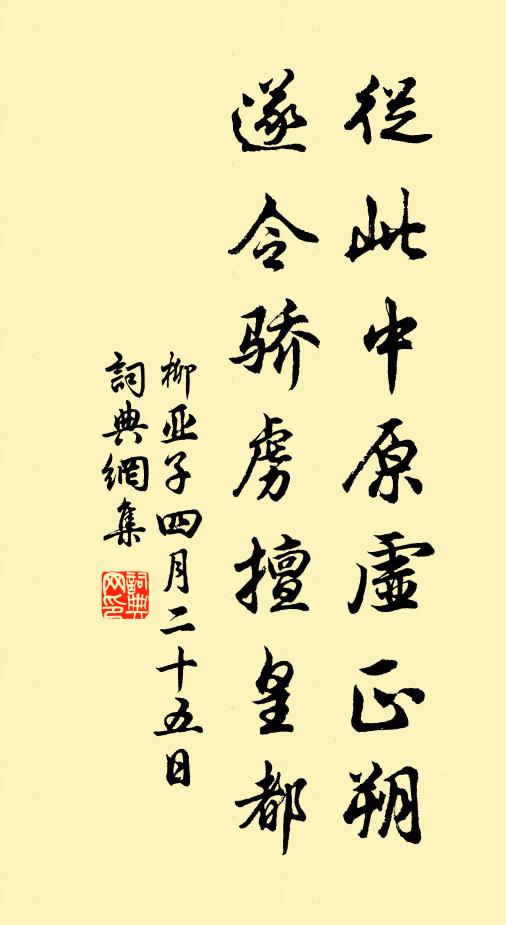 從此中原虛正朔
遂令骄虜擅皇都
柳亚子四月二十五日
詞典網集
詞典网印